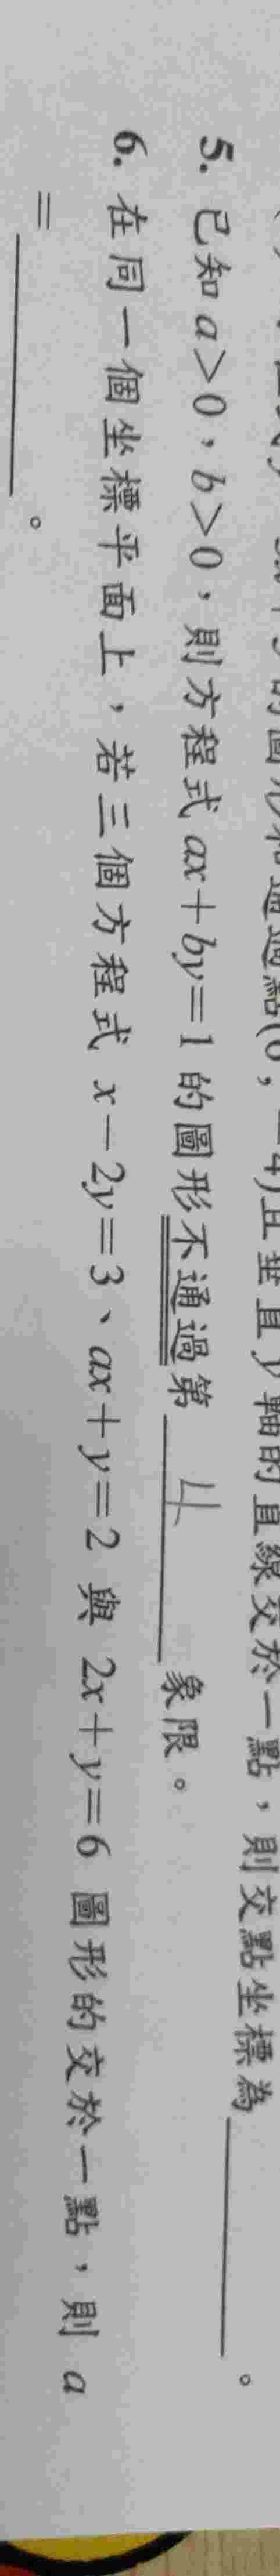 的圖形和通過點(0,-4)且垂直 y 軸的直線交於一點，則交點坐標為＿＿＿＿。
5. 已知 a>0，b>0，則方程式 ax+by=1 的圖形不通過第 4 象限。
6. 在同一個坐標平面上，若三個方程式 x-2y=3、ax+y=2 與 2x+y=6 圖形的交於一點，則 a
=＿＿＿＿。